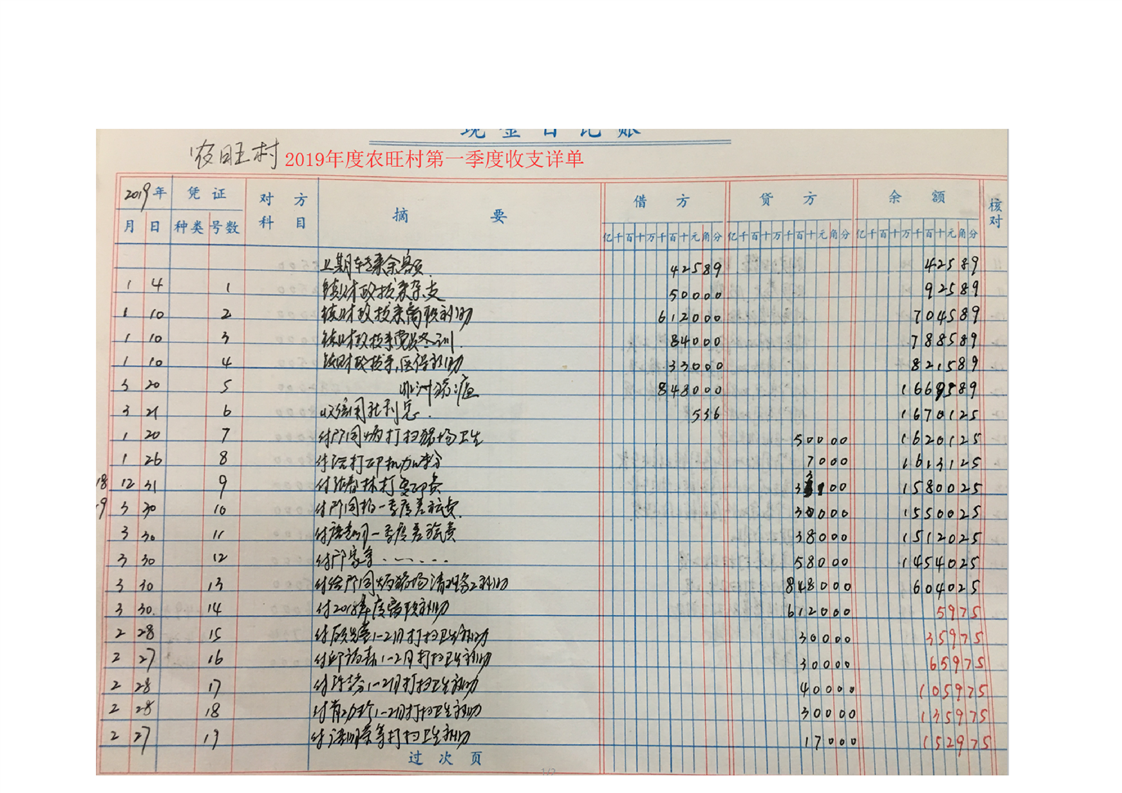 现金日记账
农旺村 2019年度农旺村第一季度收支详单
2019年 凭证 对方科目 摘要 借方 贷方 余额 核对
月 日 种类 号数 亿千百十万千百十元角分 亿千百十万千百十元角分 亿千百十万千百十元角分
上期结余额 42589 42589
1 4 1 镇财政拨来杂支 50000 92589
1 10 2 镇财政拨来离职补助 612000 704589
1 10 3 镇财政拨来党员冬训 84000 788589
1 10 4 镇财政拨来医保补助 33000 821589
3 20 5 非洲猪瘟 848000 1669589
3 21 6 收信用社利息 536 1670125
1 20 7 打扫猪场卫生 50000 1620125
1 26 8 付 打印机加 7000 1613125
18 12 31 9 付 打复印费 33100 1580025
19 3 30 10 付 一季度差旅费 30000 1550025
3 30 11 付 一季度差旅费 38000 1512025
3 30 12 付 58000 1454025
3 30 13 付给 猪场清 补助 848000 604025
3 30 14 付2018年度离职补助 612000 5975
2 28 15 付 1-2月打扫卫生补助 30000 35975
2 27 16 付 1-2月打扫卫生补助 30000 65975
2 28 17 付 1-2月打扫卫生补助 40000 105975
2 28 18 付 1-2月打扫卫生补助 30000 135975
2 27 19 付 等打扫卫生补助 17000 152975
过次页